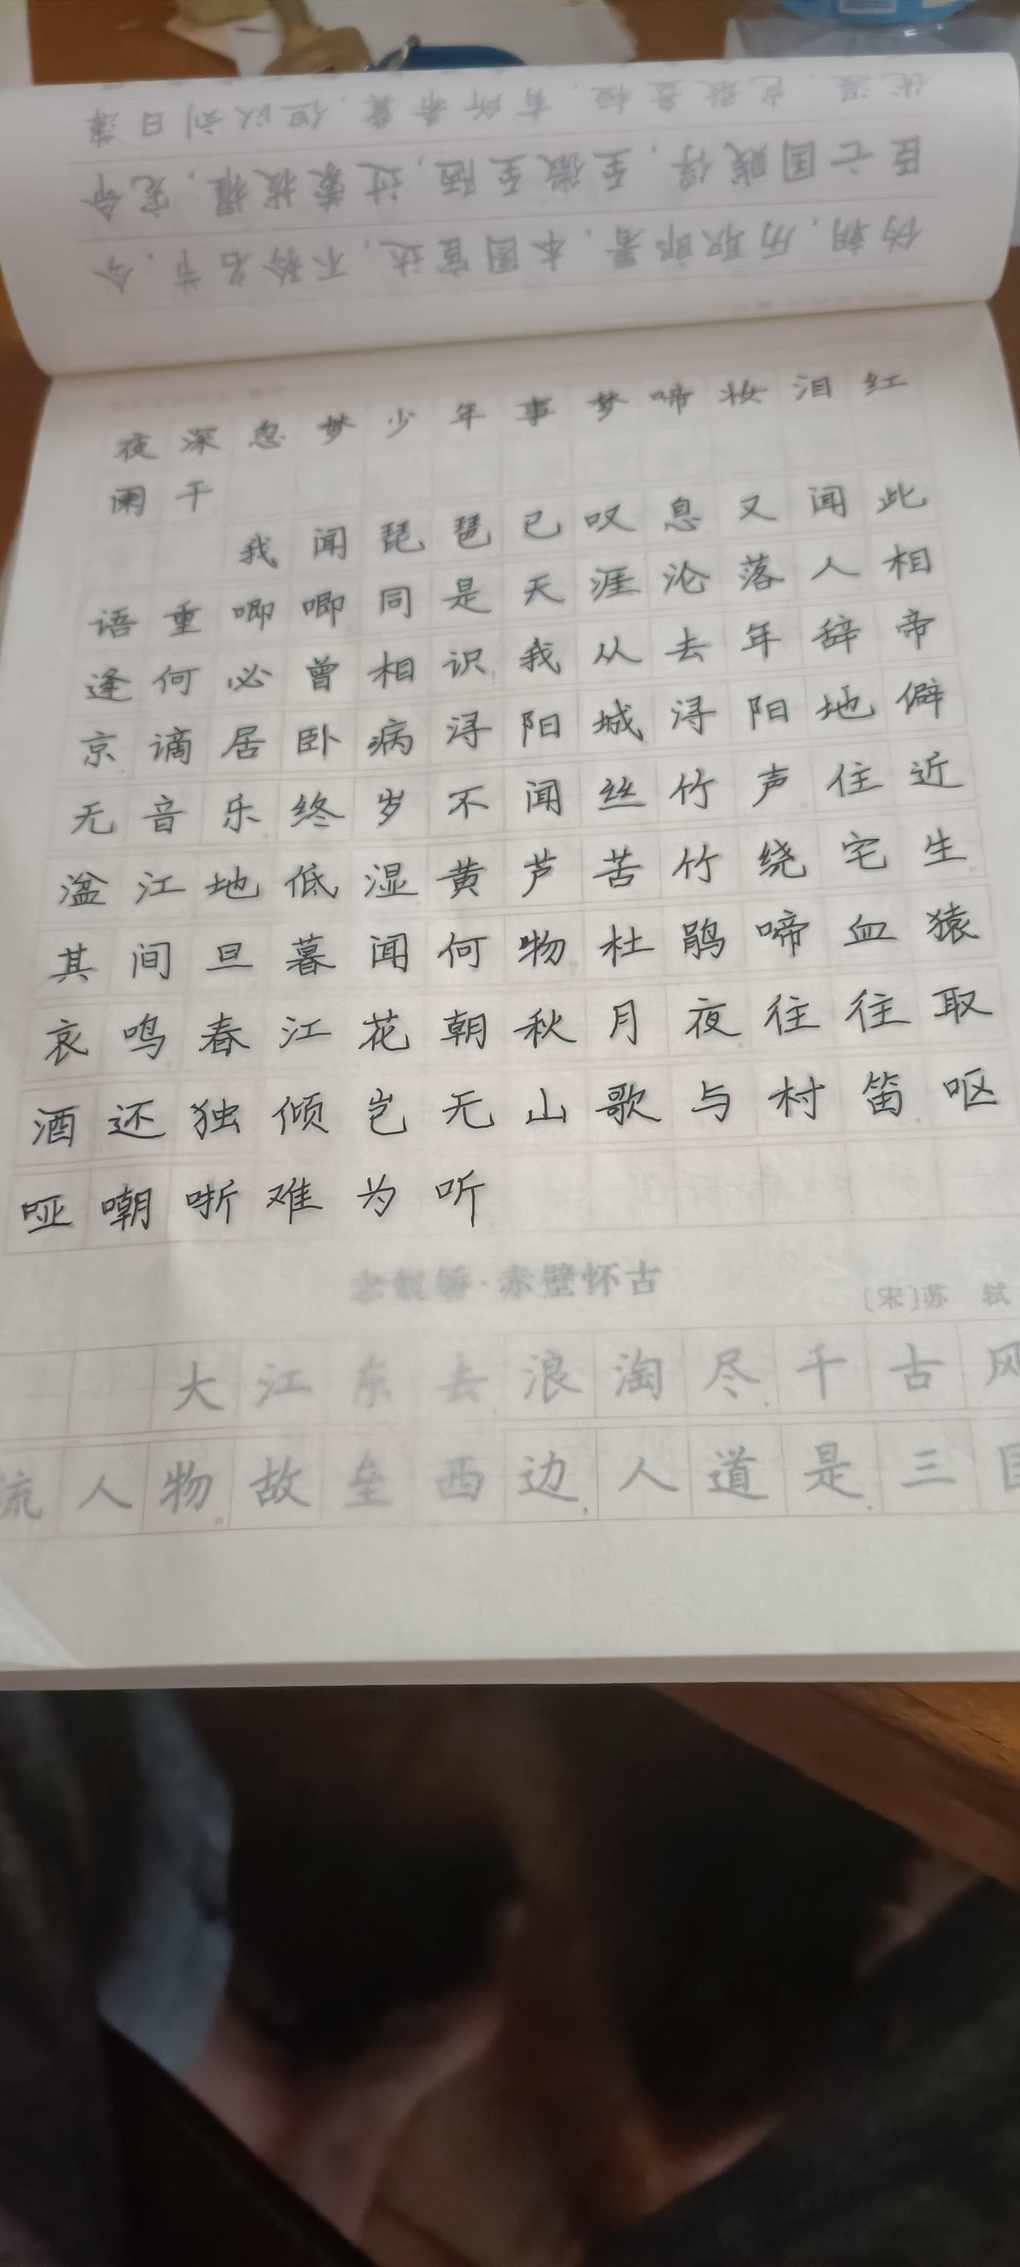 优渥，岂敢盘桓，有所希冀，但以刘日薄
臣亡国贱俘，至微至陋，过蒙拔擢，宠命
伪朝，历职郎署，本图宦达，不矜名节，今
夜深忽梦少年事梦啼妆泪红
阑干
我闻琵琶已叹息又闻此
语重唧唧同是天涯沦落人相
逢何必曾相识我从去年辞帝
京谪居卧病浔阳城浔阳地僻
无音乐终岁不闻丝竹声住近
湓江地低湿黄芦苦竹绕宅生
其间旦暮闻何物杜鹃啼血猿
哀鸣春江花朝秋月夜往往取
酒还独倾岂无山歌与村笛呕
哑嘲哳难为听
念奴娇·赤壁怀古
[宋]苏 轼
大江东去浪淘尽千古风
流人物故垒西边人道是三国